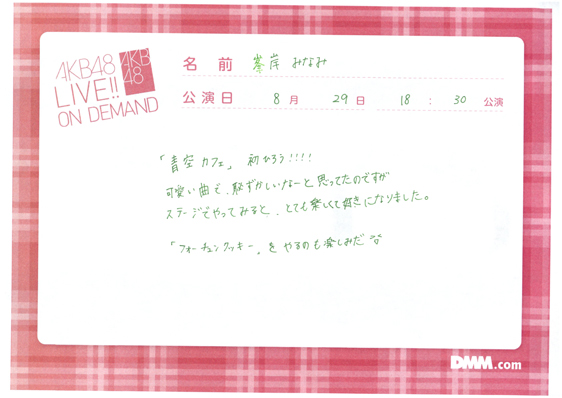 AKB48
LIVE!!
ON DEMAND
AKB
48
名 前 峯岸 みなみ
公演日 8 月 29 日 18 : 30 公演
「青空カフェ」 初ひろう!!!!
可愛い曲で、恥ずかしいなーと思ってたのですが
ステージでやってみると、とても楽しくて好きになりました。
「フォーチュンクッキー」をやるのも楽しみだ
DMM.com